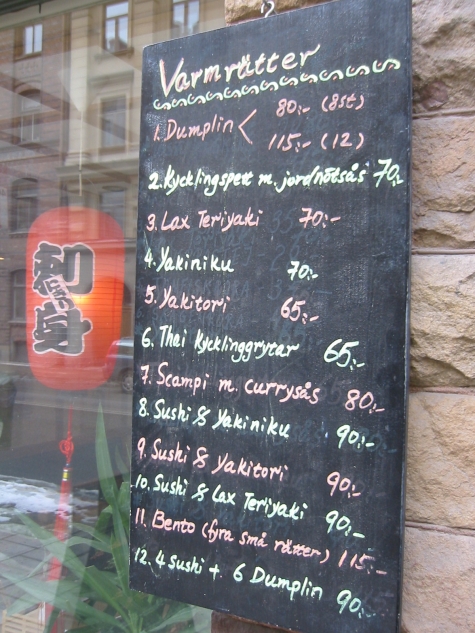 Varmrätter
1. Dumplin < 80:- (8st)
115:- (12)
2. Kycklingspett m. jordnötsås 70:-
3. Lax Teriyaki 70:-
4. Yakiniku 70:-
5. Yakitori 65:-
6. Thai Kycklinggrytar 65:-
7. Scampi m. currysås 80:-
8. Sushi & Yakiniku 90:-
9. Sushi & Yakitori 90:-
10. Sushi & Lax Teriyaki 90:-
11. Bento (fyra små rätter) 115:-
12. 4 Sushi + 6 Dumplin 90:-